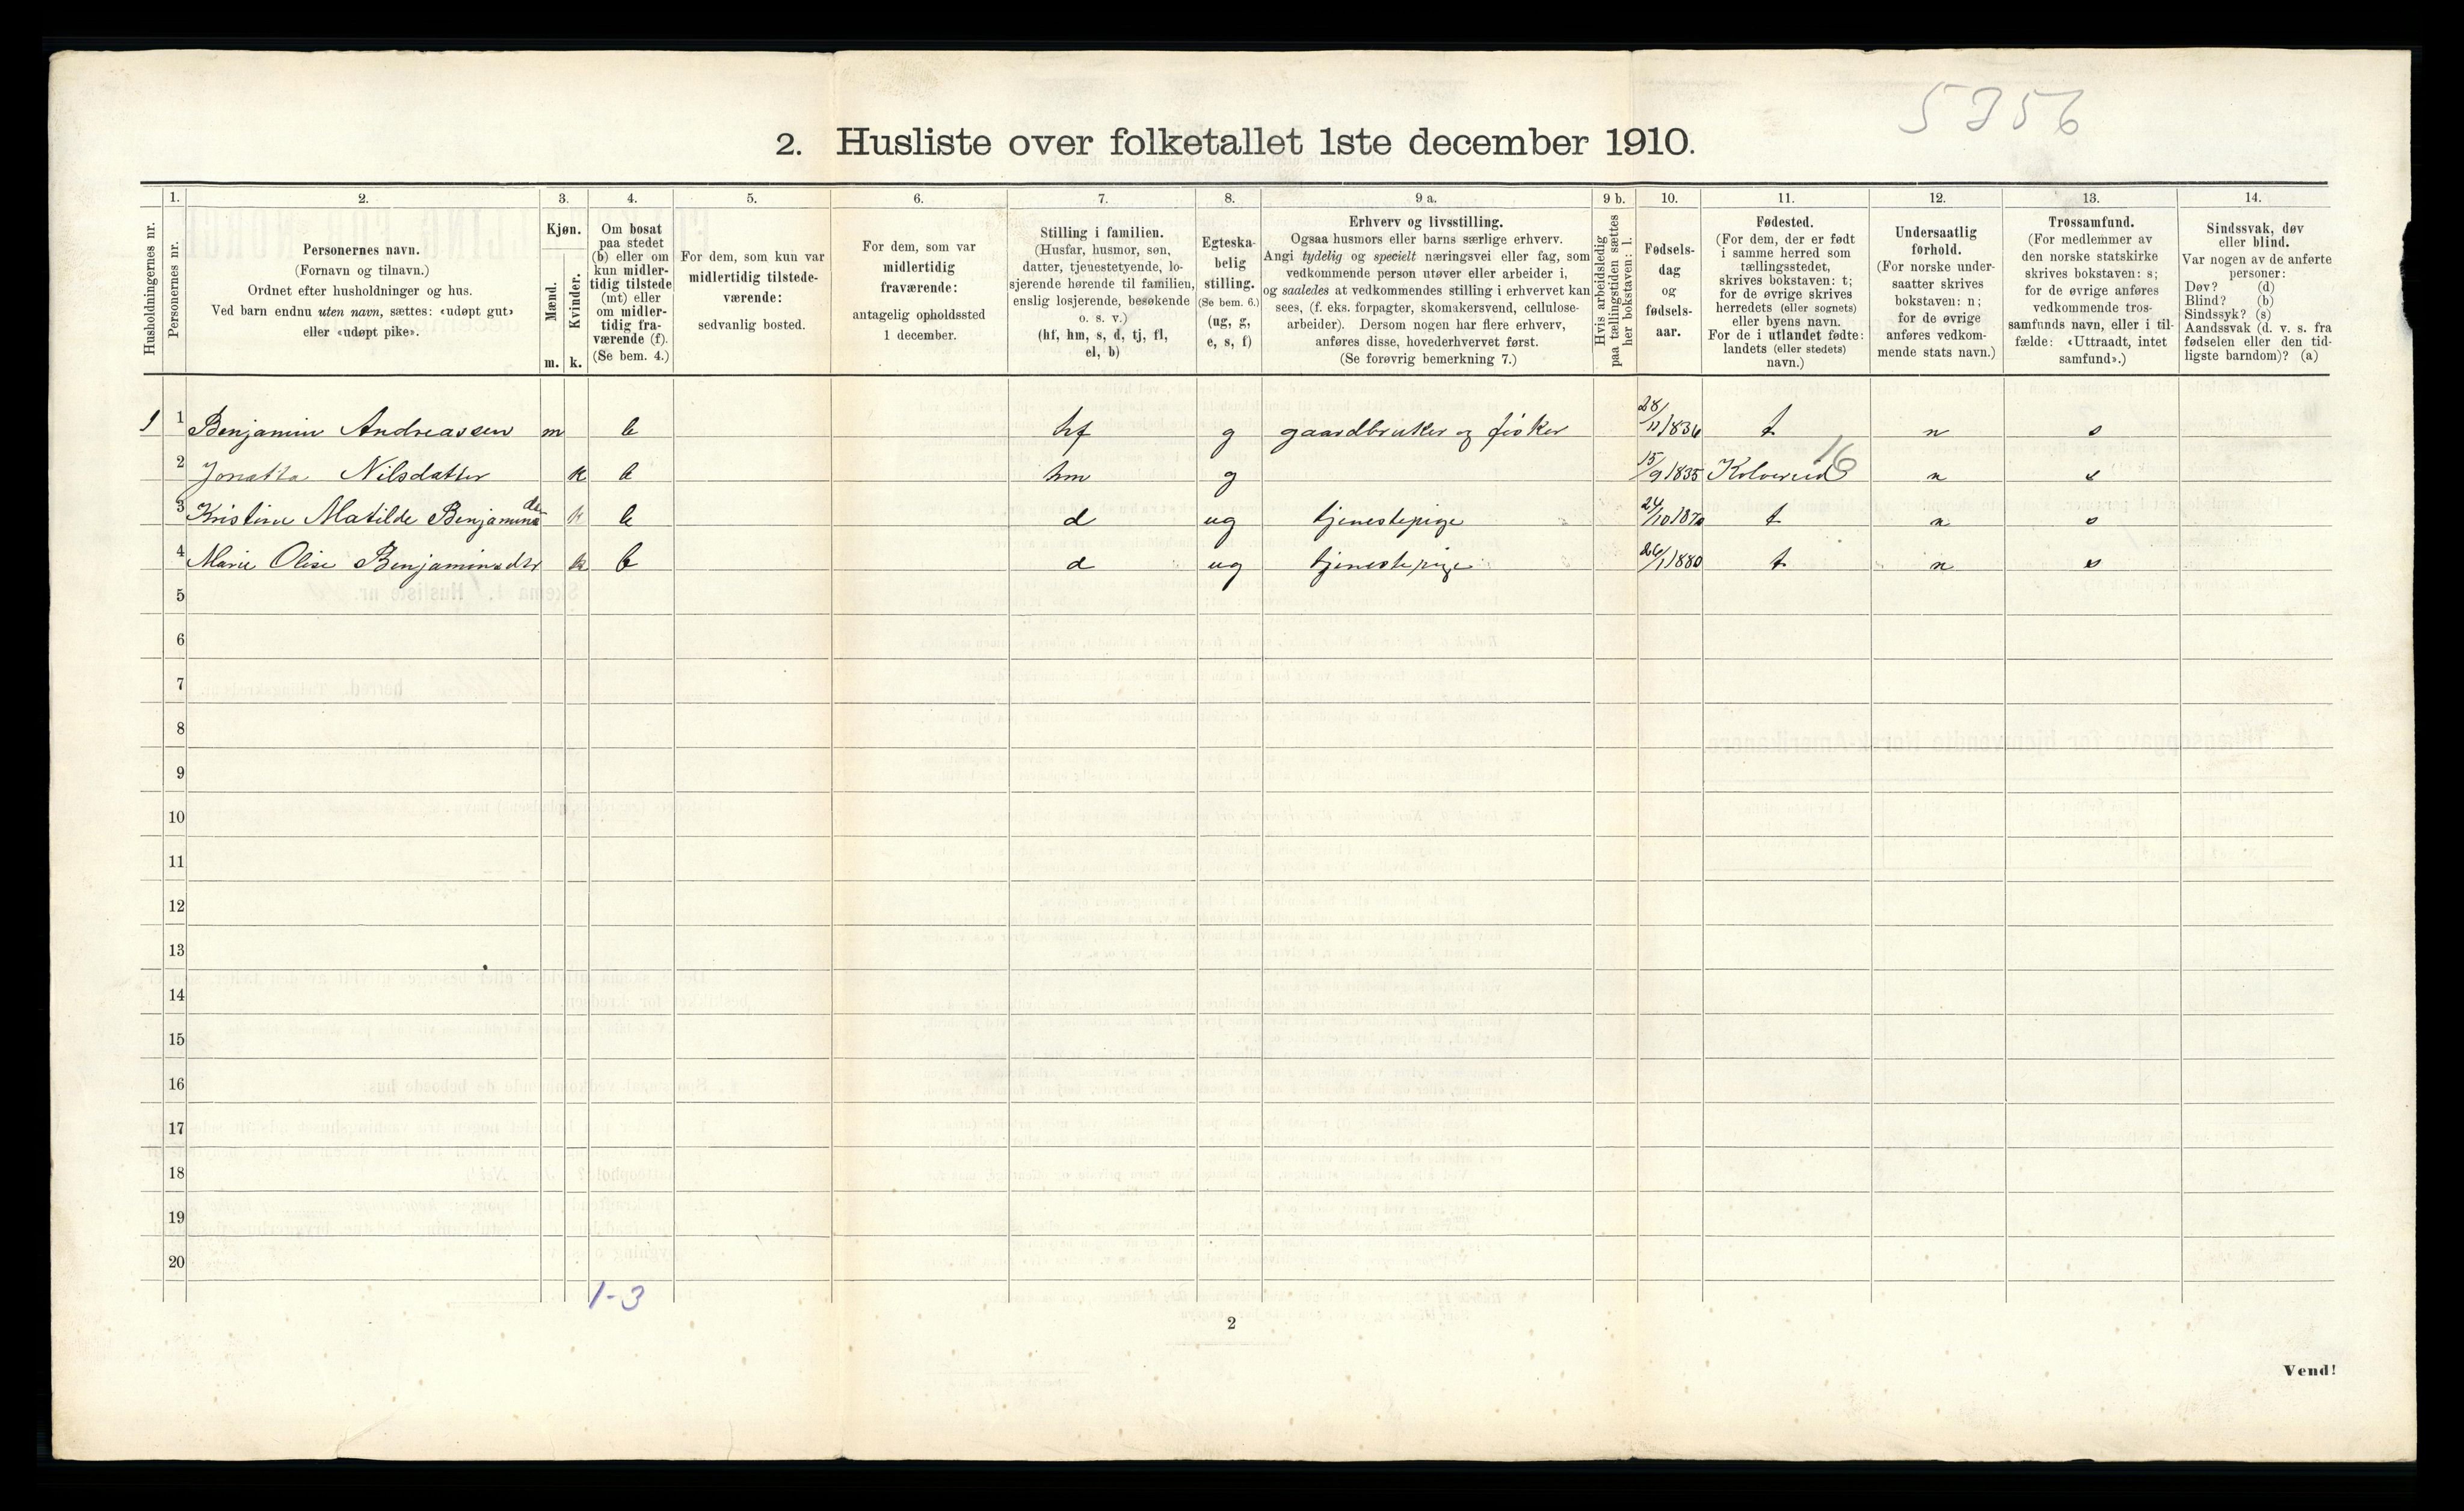 5356
2. Husliste over folketallet 1ste december 1910.
Husholdningernes nr.
1.
Personernes nr.
2.
Personernes navn.
(Fornavn og tilnavn.)
Ordnet efter husholdninger og hus.
Ved barn endnu uten navn, sættes: «udøpt gut»
eller «udøpt pike».
3.
Kjøn.
Mænd.
Kvinder.
m. k.
4.
Om bosat
paa stedet
(b) eller om
kun midler-
tidig tilstede
(mt) eller
om midler-
tidig fra-
værende (f).
(Se bem. 4.)
5.
For dem, som kun var
midlertidig tilstede-
værende:
sedvanlig bosted.
6.
For dem, som var
midlertidig
fraværende:
antagelig opholdssted
1 december.
7.
Stilling i familien.
(Husfar, husmor, søn,
datter, tjenestetyende, lo-
sjerende hørende til familien,
enslig losjerende, besøkende
o. s. v.)
(hf, hm, s, d, tj, fl,
el, b)
8.
Egteska-
belig
stilling.
(Se bem. 6.)
(ug, g,
e, s, f)
9 a.
Erhverv og livsstilling.
Ogsaa husmors eller barns særlige erhverv.
Angi tydelig og specielt næringsvei eller fag, som
vedkommende person utøver eller arbeider i,
og saaledes at vedkommendes stilling i erhvervet kan
sees, (f. eks. forpagter, skomakersvend, cellulose-
arbeider). Dersom nogen har flere erhverv,
anføres disse, hovederhvervet først.
(Se forøvrig bemerkning 7.)
9 b.
Hvis arbeidsledig
paa tællingstiden sættes
her bokstaven: l.
10.
Fødsels-
dag
og
fødsels-
aar.
11.
Fødested.
(For dem, der er født
i samme herred som
tællingsstedet,
skrives bokstaven: t;
for de øvrige skrives
herredets (eller sognets)
eller byens navn.
For de i utlandet fødte:
landets (eller stedets)
navn.)
12.
Undersaatlig
forhold.
(For norske under-
saatter skrives
bokstaven: n;
for de øvrige
anføres vedkom-
mende stats navn.)
13.
Trossamfund.
(For medlemmer av
den norske statskirke
skrives bokstaven: s;
for de øvrige anføres
vedkommende tros-
samfunds navn, eller i til-
fælde: «Uttraadt, intet
samfund».)
14.
Sindssvak, døv
eller blind.
Var nogen av de anførte
personer:
Døv? (d)
Blind? (b)
Sindssyk? (s)
Aandssvak (d. v. s. fra
fødselen eller den tid-
ligste barndom)? (a)
1 1 Benjamin Andreassen m b hf g gaardbruker og fisker 28/11 1836 t n s
2 Jonetta Nilsdatter k b hm g 15/9 1835 Kolvereid 16 n s
3 Kristine Matilde Benjamins dtr k b d ug tjenestepige 24/10 1870 t n s
4 Marie Olise Benjaminsdtr k b d ug tjenestepige 26/1 1880 t n s
5
6
7
8
9
10
11
12
13
14
15
16
17
18
19
20
1-3
2
Vend!